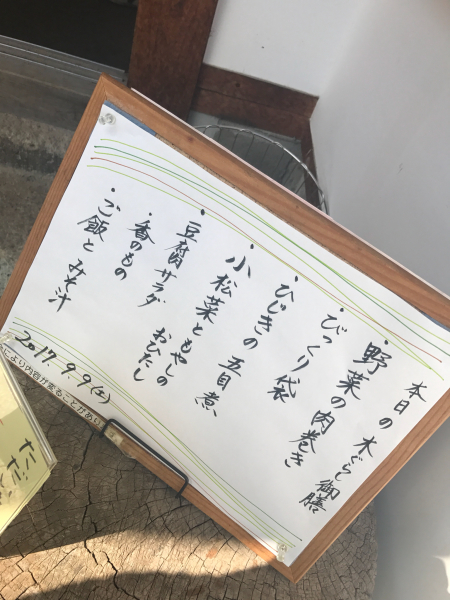 本日の木ぐらし御膳
・野菜の肉巻き
・びっくり袋
・ひじきの五目煮
・小松菜ともやしの
おひたし
・豆腐サラダ
・香のもの
・ご飯とみそ汁
2017.9.9(土)
により内容が変ることがあり